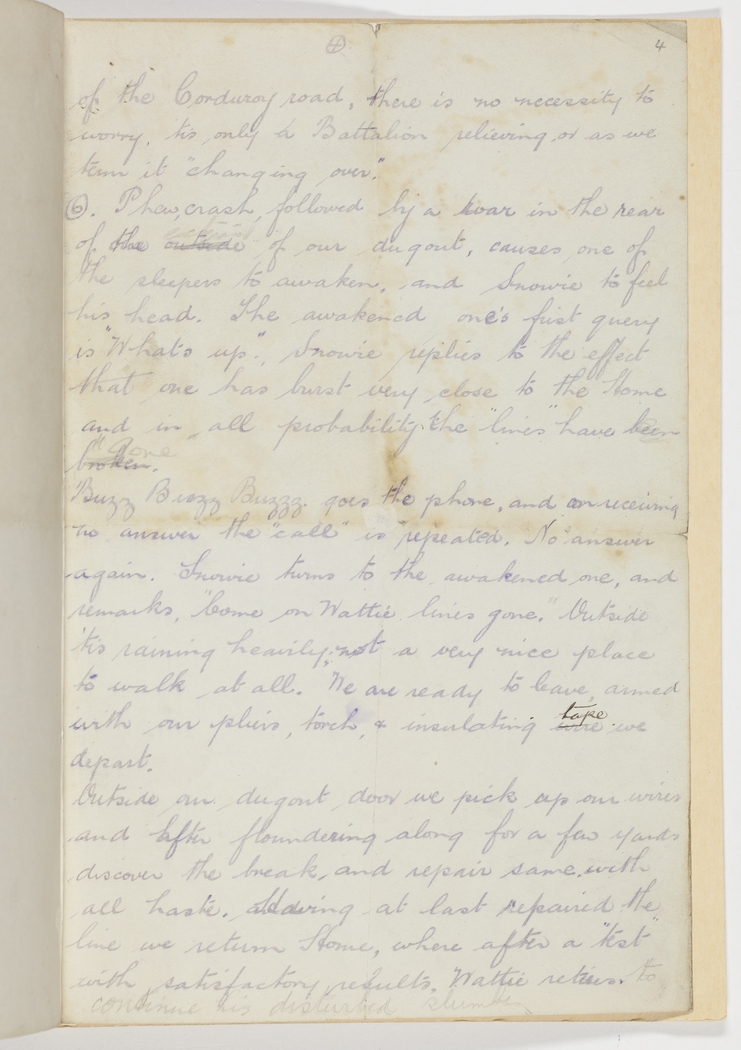 4
4
of the Corduroy road, there is no necessity to
worry, tis only a Battalion relieving or as we
term it "changing over."
6. Phew, crash, followed by a roar in the rear
of the outside of our dugout, causes one of
the sleepers to awaken, and Snowie to feel
his head. The awakened one's first query
is "What's up". Snowie replies to the effect
that one has burst very close to the Home
and in all probability the "lines" have been
"Gone
broken.
Buzz Buzz Buzzz goes the phone, and on receiving
no answer the "call" is repeated. No answer
again. Snowie turns to the awakened one, and
remarks, "Come on Wattie lines gone." Outside
'tis raining heavily, not a very nice place
to walk at all. We are ready to leave, armed
tape
with our pliers, torch, & insulating wire we
depart.
Outside our dugout door we pick up our wires
and after floundering along for a few yards
discover the break, and repair same with
all haste. Having at last repaired the
line we return Home, where after a "test"
with satisfactory results, Wattie retires to
continue his disturbed slumber